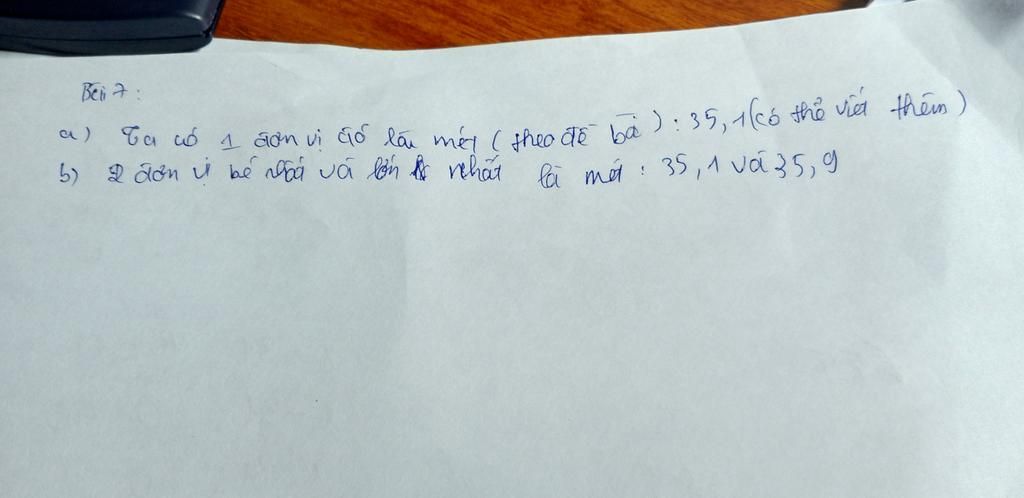 Bài 7:
a) Ta có 1 đơn vị đó là mét (theo đề bà): 35,1 (có thể viết thêm)
b) 2 đơn vị bé nhất và lớn nhất là mét: 35,1 và 35,9